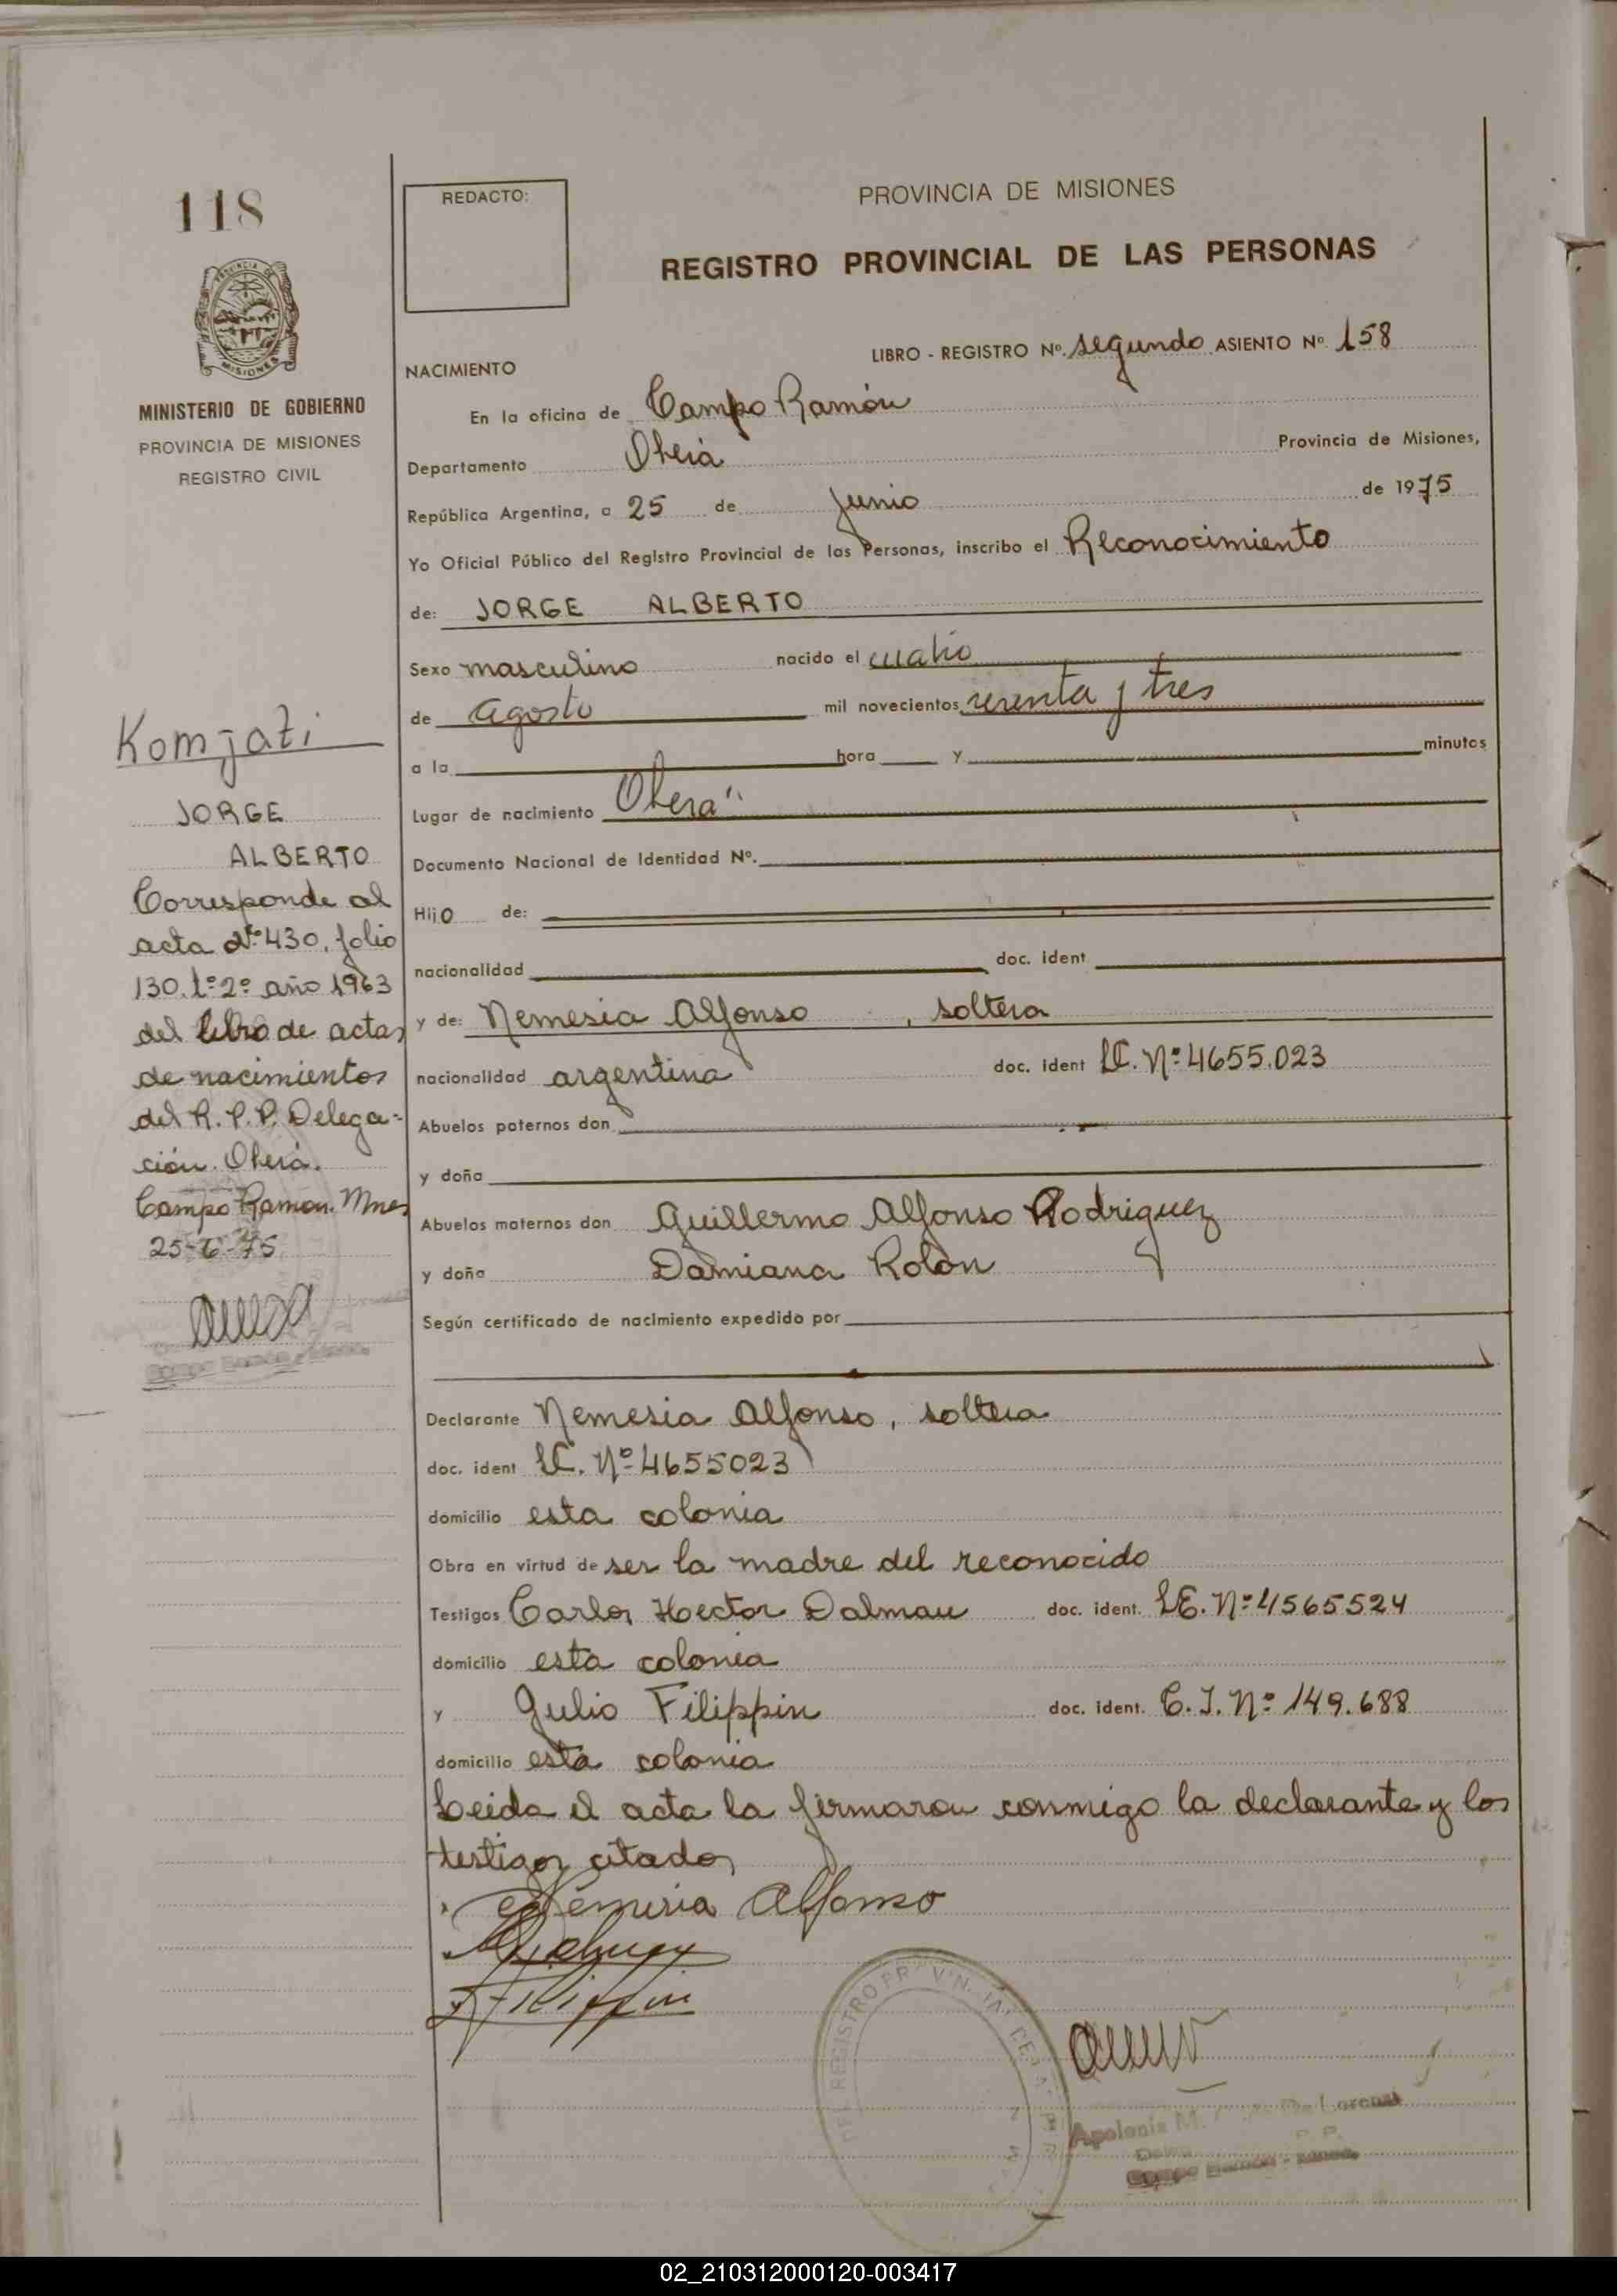 118
PROVINCIA DE MISIONES
MINISTERIO DE GOBIERNO
PROVINCIA DE MISIONES
REGISTRO CIVIL
Komjati
JORGE
ALBERTO
Corresponde al
acta Nº 430, folio
130, tº 2º año 1963
del libro de actas
de nacimientos
del R. P. P. Delega-
ción Oberá.
Campo Ramon. Mnes
25-6-75
REDACTO:
PROVINCIA DE MISIONES
REGISTRO PROVINCIAL DE LAS PERSONAS
LIBRO - REGISTRO Nº. segundo ASIENTO Nº. 158
NACIMIENTO
En la oficina de Campo Ramón
Departamento Oberá Provincia de Misiones,
República Argentina, a 25 de Junio de 1975
Yo Oficial Público del Registro Provincial de las Personas, inscribo el Reconocimiento
de: JORGE ALBERTO
Sexo masculino nacido el cuatro
de Agosto mil novecientos sesenta y tres
a la hora y minutos
Lugar de nacimiento Oberá
Documento Nacional de Identidad Nº.
Hijo de:
nacionalidad doc. ident
y de: Nemesia Alfonso, soltera
nacionalidad argentina doc. ident LC. Nº 4655.023
Abuelos paternos don
y doña
Abuelos maternos don Guillermo Alfonso Rodriguez
y doña Damiana Rolon
Según certificado de nacimiento expedido por
Declarante Nemesia Alfonso, soltera
doc. ident LC. Nº 4655023
domicilio esta colonia
Obra en virtud de ser la madre del reconocido
Testigos Carlos Hector Dalmau doc. ident. LE. Nº 4565524
domicilio esta colonia
y Julio Filippin doc. ident. C.I. Nº 149.688
domicilio esta colonia
Leida el acta la firmaron conmigo la declarante y los
testigos citados
Nemesia Alfonso
Filippin
DEL REGISTRO
Apolonia M. De Lorenz
Campo Ramón - Mnes.
02_210312000120-003417